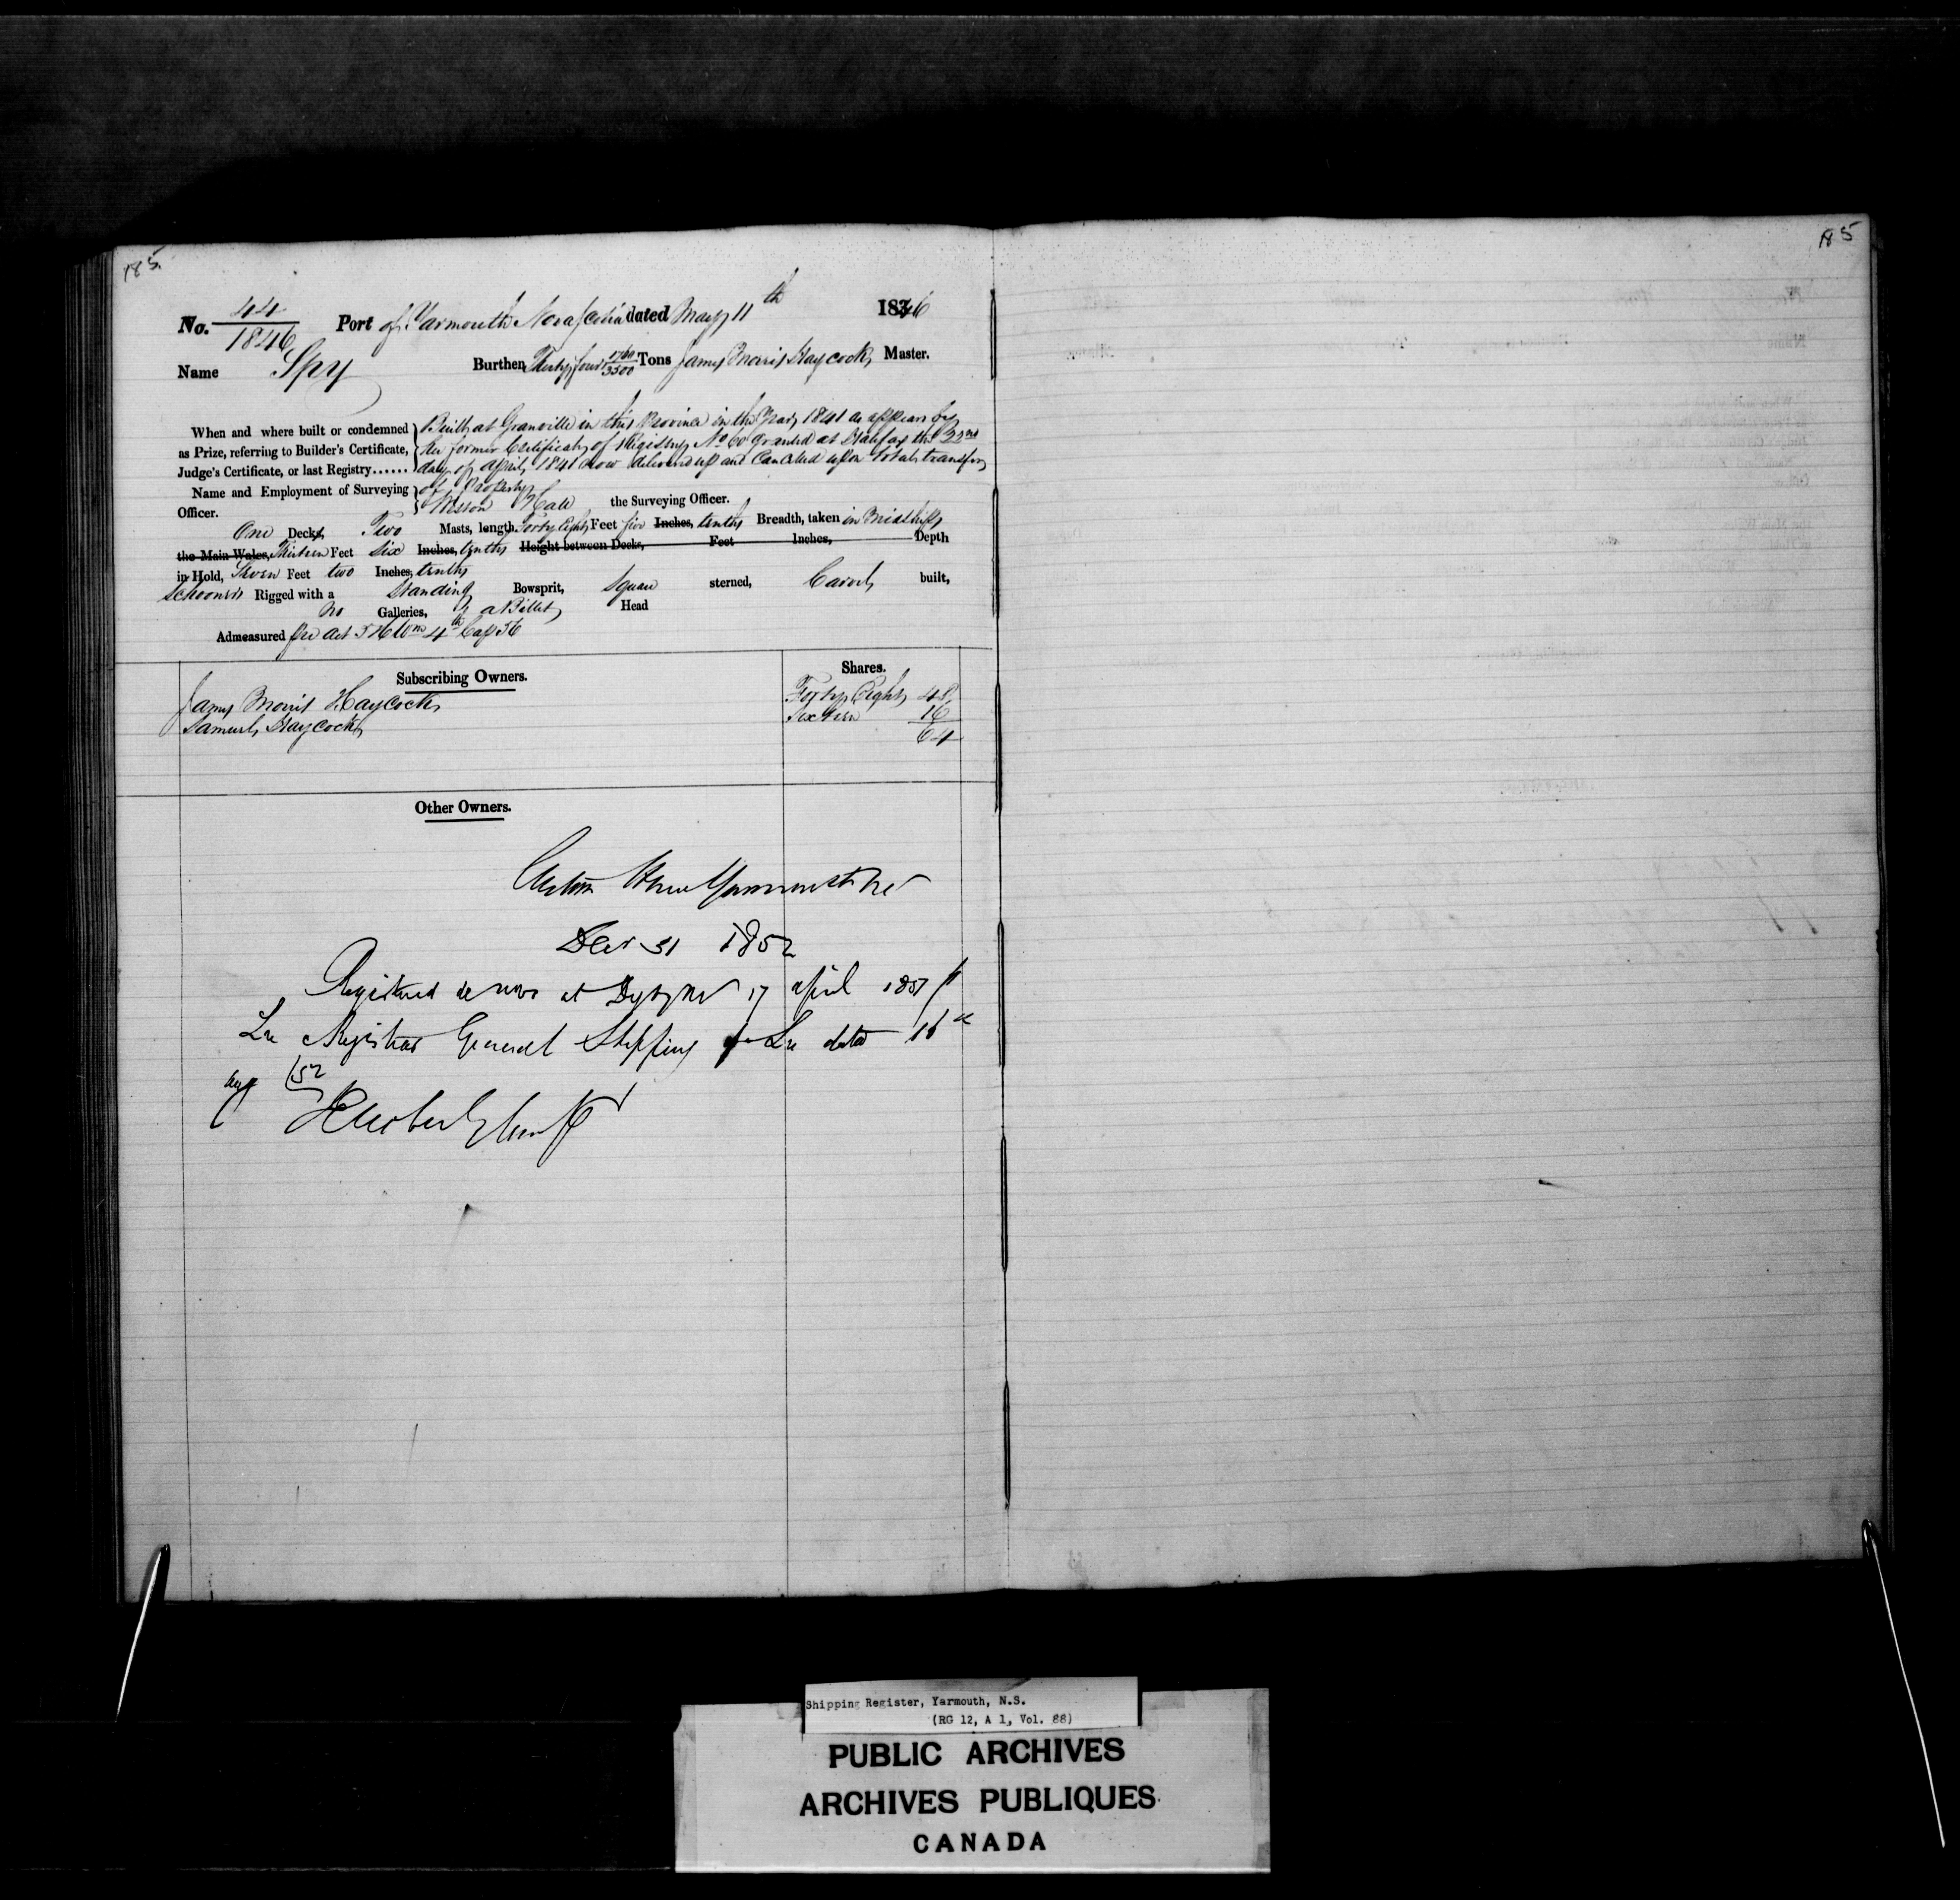 185.
185
No. 44/1846 Port of Yarmouth Nova Scotia dated May 11th 1846
Name Spy Burthen Thirty four 1760/3500 Tons James Morris Haycock Master.
When and where built or condemned as Prize, referring to Builder's Certificate, Judge's Certificate, or last Registry......
Built at Granville in this Province in the Year 1841 as appears by
her former Certificate of Registry No 60 granted at Halifax the 22nd
day of April 1841 now delivered up and Cancelled upon total transfer
of Property
Name and Employment of Surveying Officer. Hale the Surveying Officer.
One Decks, Two Masts, length, Forty Eight Feet five Inches, tenths Breadth, taken in Midships
the Main Wales, Thirteen Feet Six Inches, tenths Height between Decks, Feet Inches, Depth
in Hold, Seven Feet two Inches, tenths
Schooner Rigged with a Standing Bowsprit, Square sterned, Carvel built,
No Galleries, & a Billet Head
Admeasured per Act 5 & 6 Wm 4th Cap 56
Subscribing Owners. Shares.
James Morris Haycock Forty Eight 48
Samuel Haycock Sixteen 16
64
Other Owners.
Custom House Yarmouth NS
Decr 31 1852
Registered de novo at Digby NS 17 April 1851
Registrar General Shipping dated 16th
/52
Shipping Register, Yarmouth, N.S.
(RG 12, A 1, Vol. 88)
PUBLIC ARCHIVES
ARCHIVES PUBLIQUES
CANADA